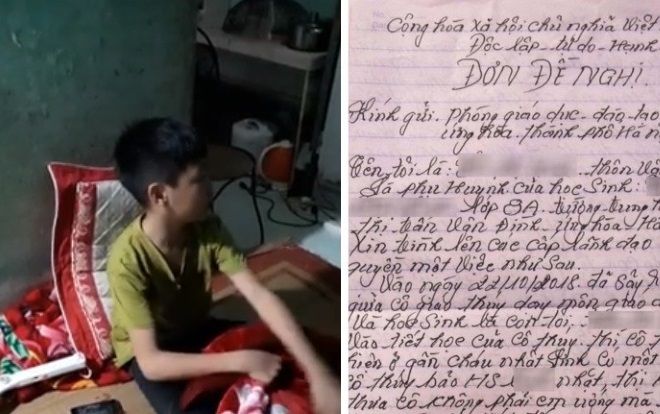 Cộng hòa xã hội chủ nghĩa Việt
Độc lập - tự do - Hạnh
ĐƠN ĐỀ NGHỊ.
Kính gửi. phòng giáo dục - đào tạo
ứng hòa. thành phố Hà n
Tên tôi là: thôn Vâ
Là phụ huynh của học sinh:
lớp 8A trường trung h
thị trấn Vân Đình ứng hòa H
Xin trình lên các cấp lãnh đạo
quyền một việc như sau.
Vào ngày 22/10/2018 đã sảy r
giữa cô giáo thủy dạy môn giáo d
Và học sinh là con tôi,
Vào tiết học của cô thủy. thì cô t
hiện ở gần cháu nhật Sinh có một
cô thủy bảo HS nhật, thì
thưa cô không phải em uống mà